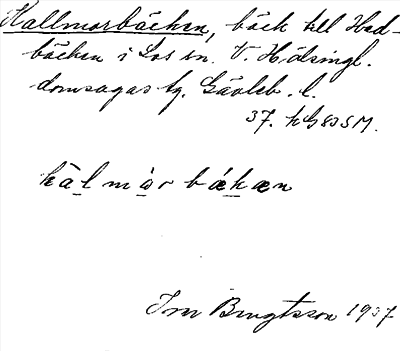 Kallmorbäcken, bäck till Hed-
bäcken i Los sn. V. Hälsingl.
domsagas tg. Gävleb. l.
37. hG8 SM.
kālmòrbäkæn
Im Bengtsson 1937